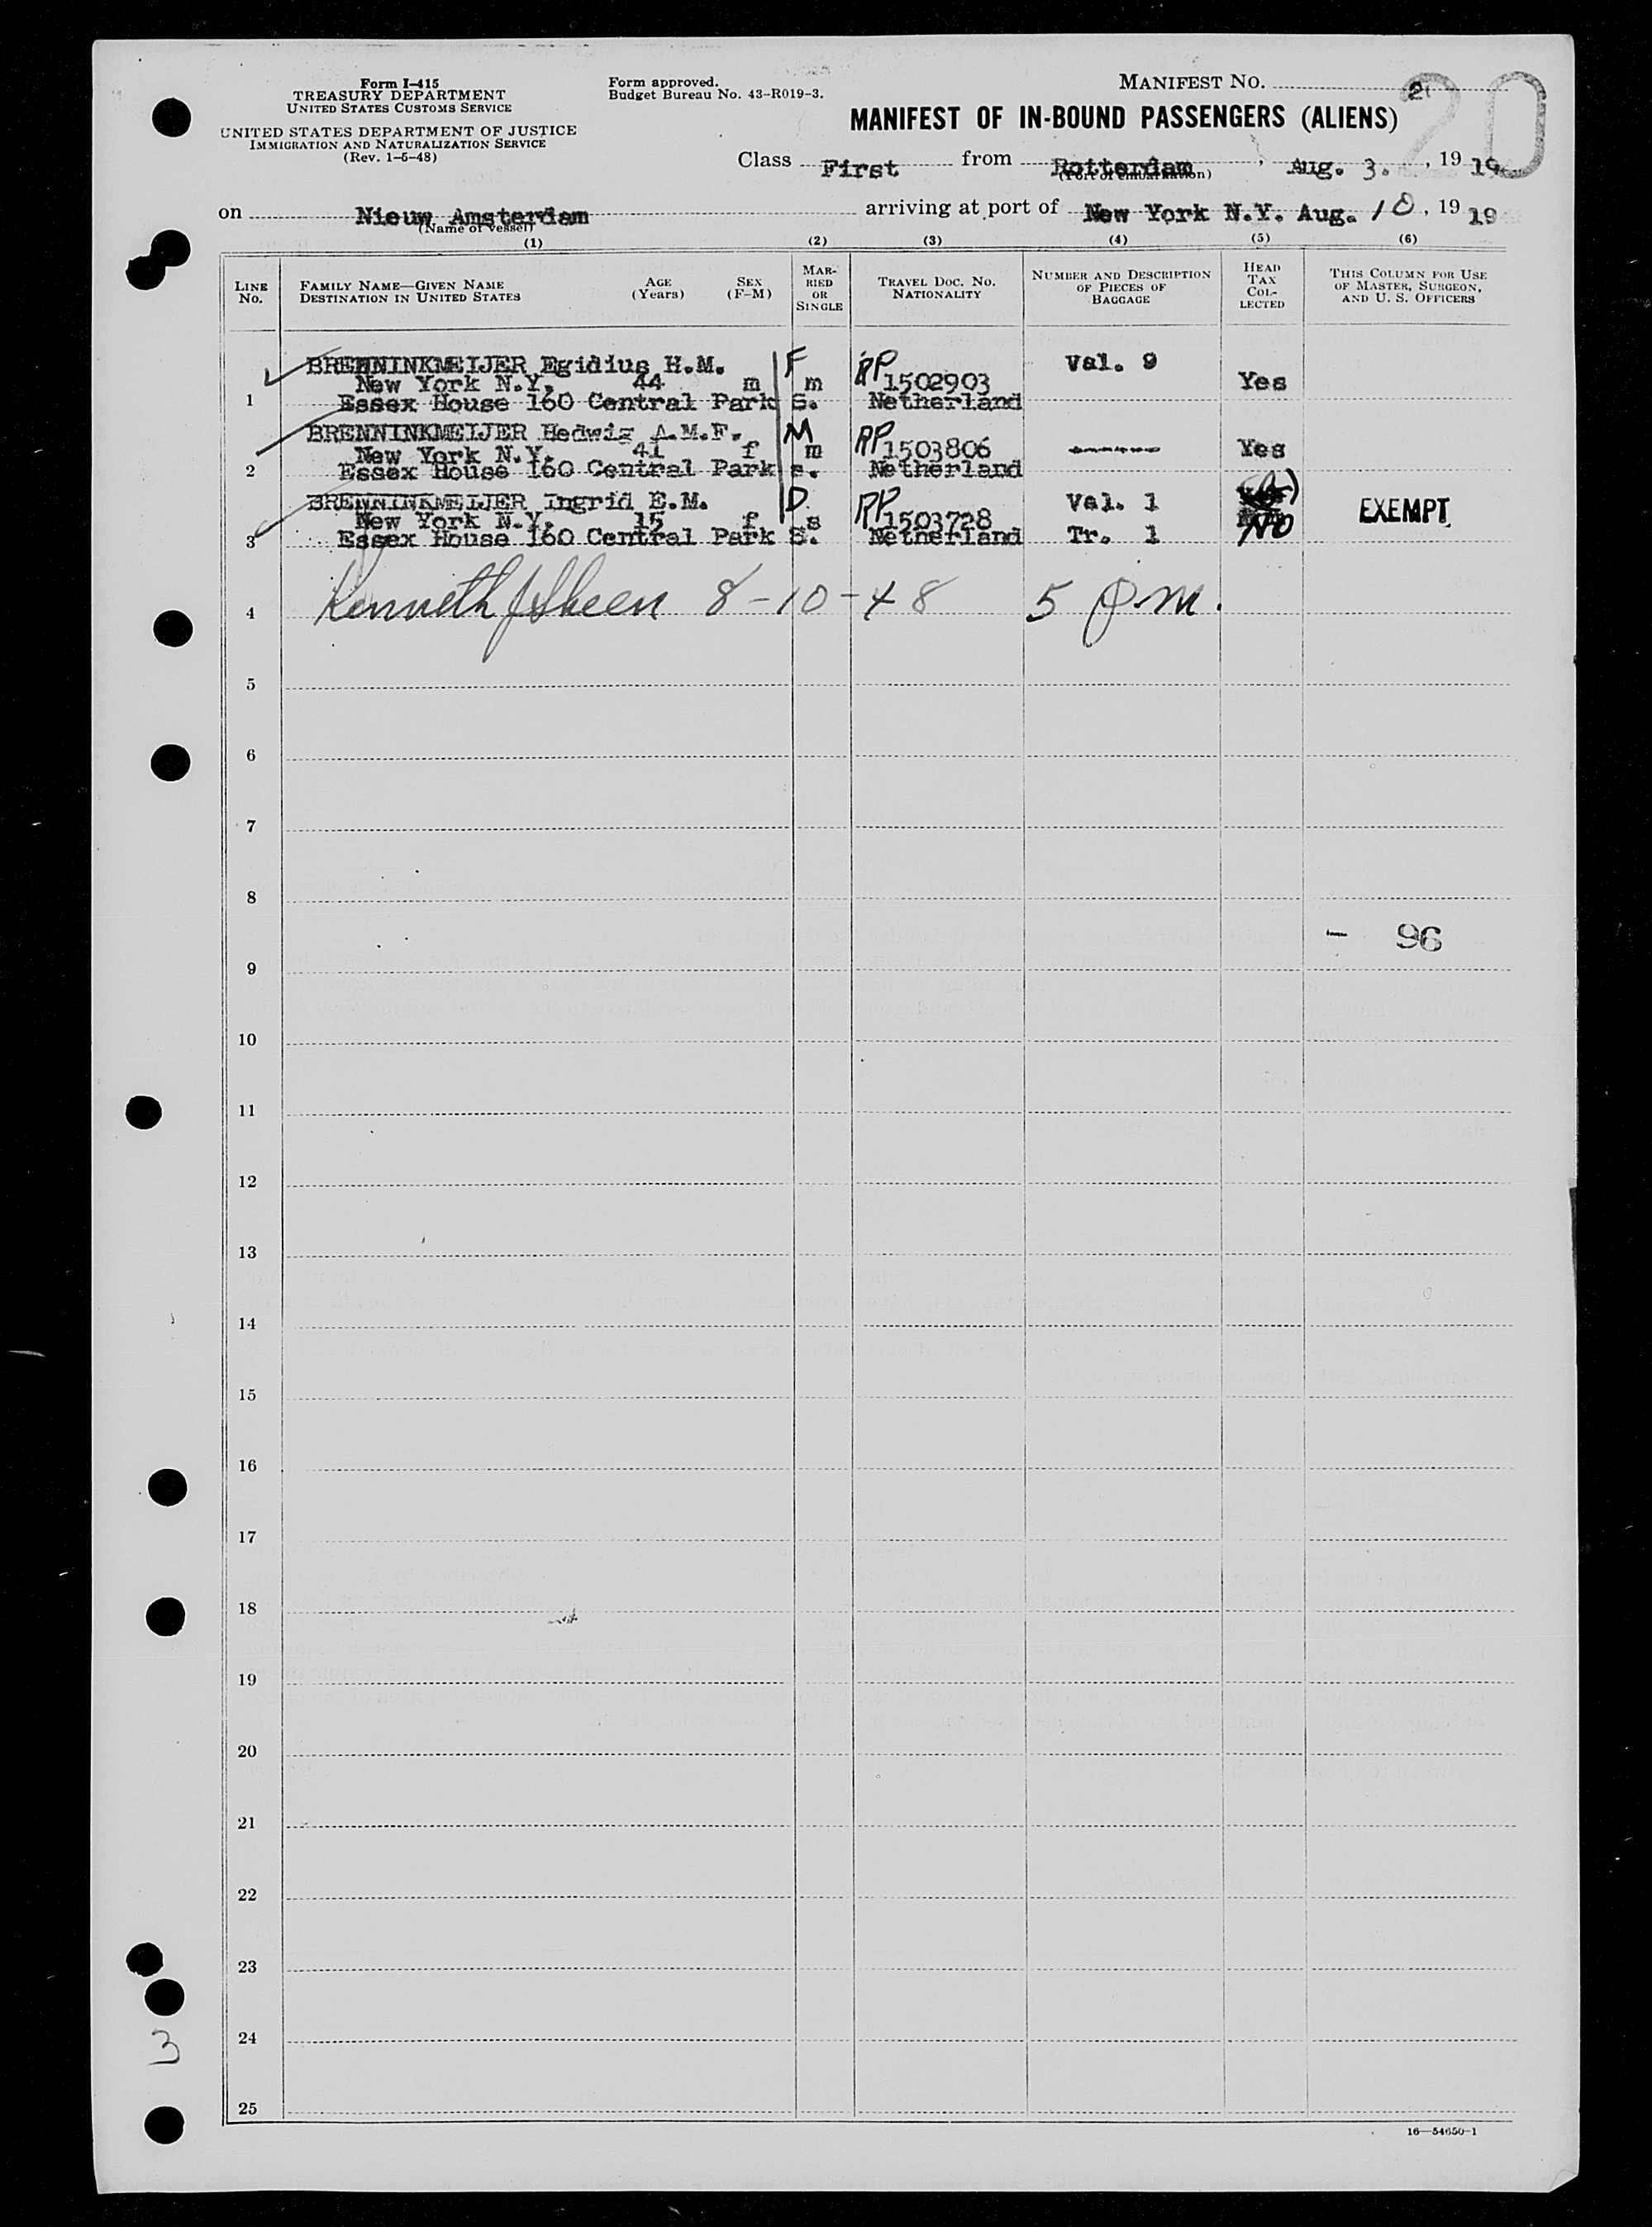 Form I-415
TREASURY DEPARTMENT
UNITED STATES CUSTOMS SERVICE
UNITED STATES DEPARTMENT OF JUSTICE
IMMIGRATION AND NATURALIZATION SERVICE
(Rev. 1-5-48)
Form approved.
Budget Bureau No. 43-R019-3.
MANIFEST NO. 20
MANIFEST OF IN-BOUND PASSENGERS (ALIENS)
Class First from Rotterdam, Aug. 3., 19 19
(Port of embarkation)
on Nieuw Amsterdam arriving at port of New York N.Y. Aug. 10, 19 19
(Name of vessel)
(1) (2) (3) (4) (5) (6)
LINE No.
FAMILY NAME—GIVEN NAME
DESTINATION IN UNITED STATES
AGE (Years)
SEX (F-M)
MARRIED OR SINGLE
TRAVEL DOC. NO.
NATIONALITY
NUMBER AND DESCRIPTION OF PIECES OF BAGGAGE
HEAD TAX COLLECTED
THIS COLUMN FOR USE OF MASTER, SURGEON, AND U. S. OFFICERS
BRENNINKMEIJER Egidius H.M. F RP Val. 9
New York N.Y. 44 m m 1502903 Yes
1 Essex House 160 Central Park S. Netherland
BRENNINKMEIJER Hedwig A.M.F. M RP
New York N.Y. 41 f m 1503806 Yes
2 Essex House 160 Central Park s. Netherland
BRENNINKMEIJER Ingrid E.M. D RP Val. 1
New York N.Y. 15 f s 1503728 EXEMPT
3 Essex House 160 Central Park S. Netherland Tr. 1 No
4 Kenneth J Sheen 8-10-48 5 P.M.
5
6
7
8
- 96
9
10
11
12
13
14
15
16
17
18
19
20
21
22
23
24
3
25
16—54650-1